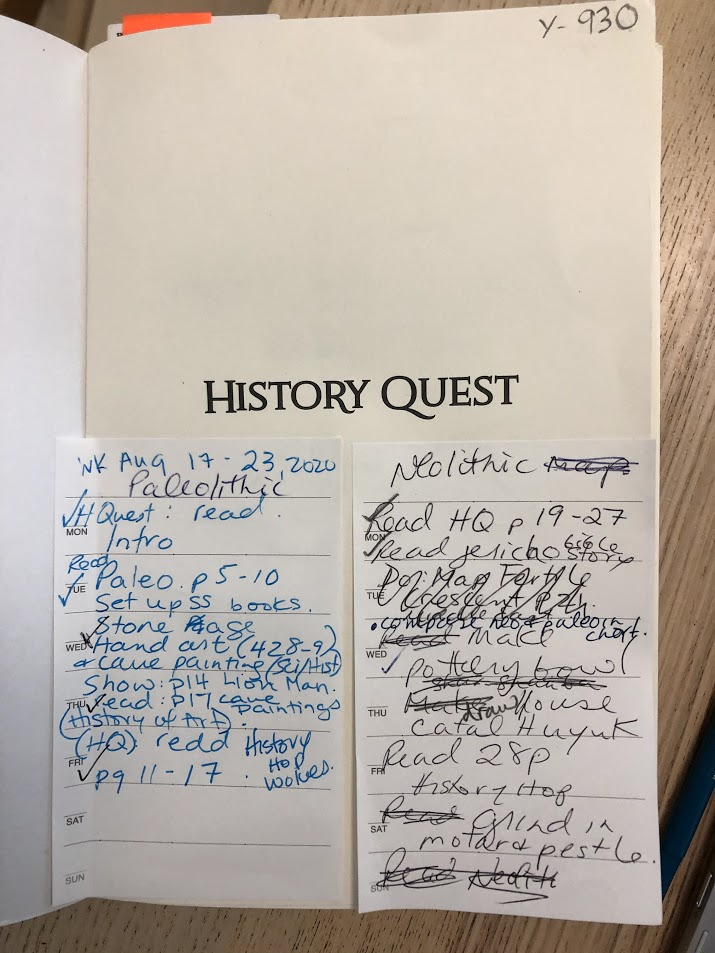 Y-930
HISTORY QUEST
WK Aug 17-23, 2020
Paleolithic
H Quest: read.
MON
Intro
Read
TUE
Paleo. p 5-10
Set up SS books.
Stone age
WED
Hand art (428-9)
& cave painting (Sci/Hist)
Show: p14 Lion Man.
THU
read: p17 cave paintings
(History of Art).
(HQ) redd History
Hop
FRI
pg 11-17. wolves.
SAT
SUN
Neolithic Map
Read HQ p 19-27
MON
Read Jericho bible story
Do: Map Fertile
TUE
Crescent
compare neo & paleo in chart.
Read Make
WED
pottery bowl
Make draw House
THU
Catal Huyuk
Read 28p
FRI
History Hop
Read Grind in
SAT
motar & pestle.
Read
SUN